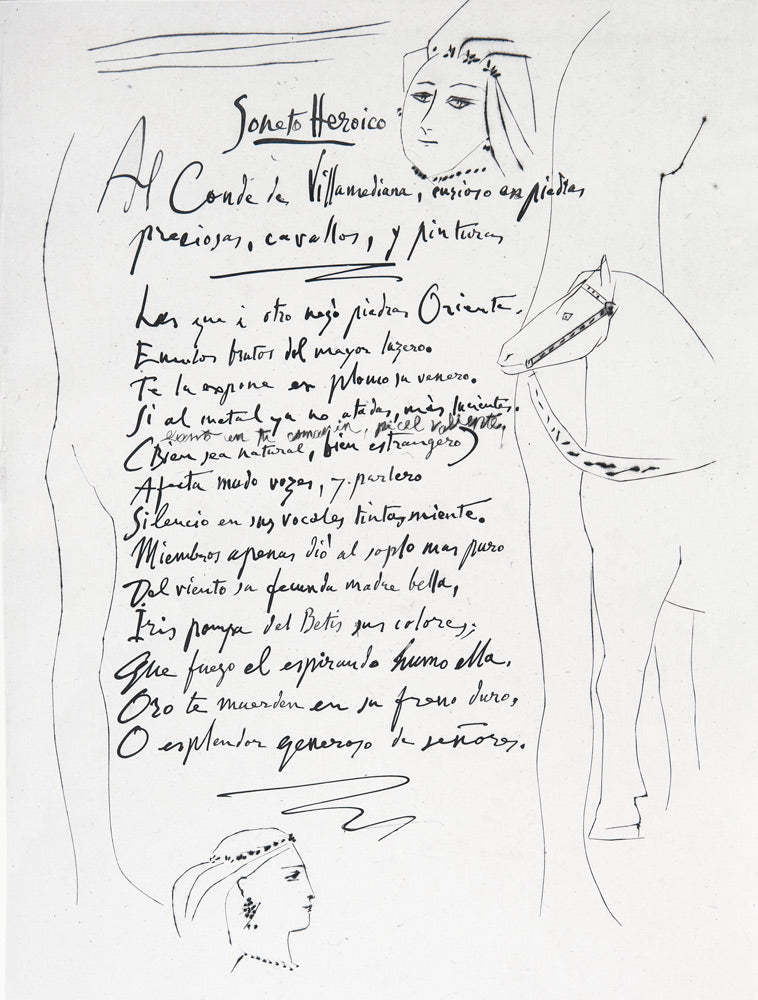 Soneto Heroico
Al Conde de Villamediana, curioso en piedras
preciosas, cavallos, y pinturas
Las que a otro negó piedras Oriente,
Emulos brutos del mayor luzero.
Te la expone en plomo su venero.
Si al metal ya no atadas, más lucientes.
cuanto en tu camarin, pincel valiente,
(Bien sea natural, bien estrangero)
Afecta mudo vozes, y parlero
Silencio en sus vocales tintas miente.
Miembros apenas dió al soplo mas puro
Del viento su fecunda madre bella,
Iris pompa del Betis sus colores;
Que fuego el espirando humo ella,
Oro te muerden en su freno duro,
O esplendor generoso de señores.